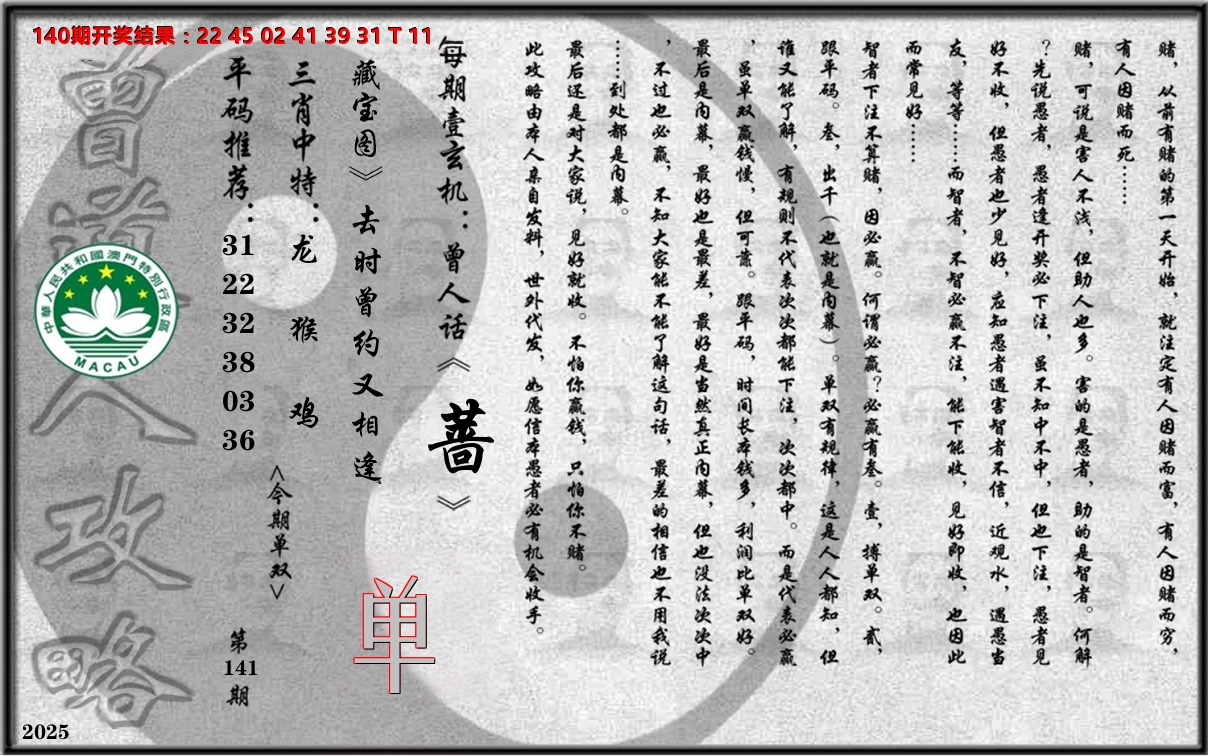 140期开奖结果：22 45 02 41 39 31 T 11
赌，从前有赌的第一天开始，就注定有人因赌而富，有人因赌而穷，
有人因赌而死……
赌，可说是害人不浅，但助人也多。害的是愚者，助的是智者。何解
？先说愚者，愚者逢开奖必下注，虽不知中不中，但也下注，愚者见
好不收，但愚者也少见好，应知愚者遇害智者不信，近观水，遇愚当
友，等等……而智者，不智必赢不注，能下能收，见好即收，也因此
而常见好……
智者下注不算赌，因必赢。何谓必赢？必赢有叁。壹，搏单双。贰，
跟平码。叁，出千（也就是内幕）。单双有规律，这是人人都知，但
谁又能了解，有规则不代表次次都能下注，次次都中。而是代表必赢
，虽单双赢钱慢，但可靠。跟平码，时间长本钱多，利润比单双好。
最后是内幕，最好也是最差，最好是当然真正内幕，但也没法次次中
，不过也必赢，不知大家能不能了解这句话，最差的相信也不用我说
……到处都是内幕。
最后还是对大家说，见好就收。不怕你赢钱，只怕你不赌。
此攻略由本人亲自发料，世外代发，如愿信本愚者必有机会收手。
每期壹玄机：曾人话《蔷》
藏宝图》去时曾约又相逢
三肖中特：龙 猴 鸡
<今期单双>
单
平码推荐：31 22 32 38 03 36
第141期
曾道人攻略
中華人民共和國澳門特別行政區
MACAU
2025